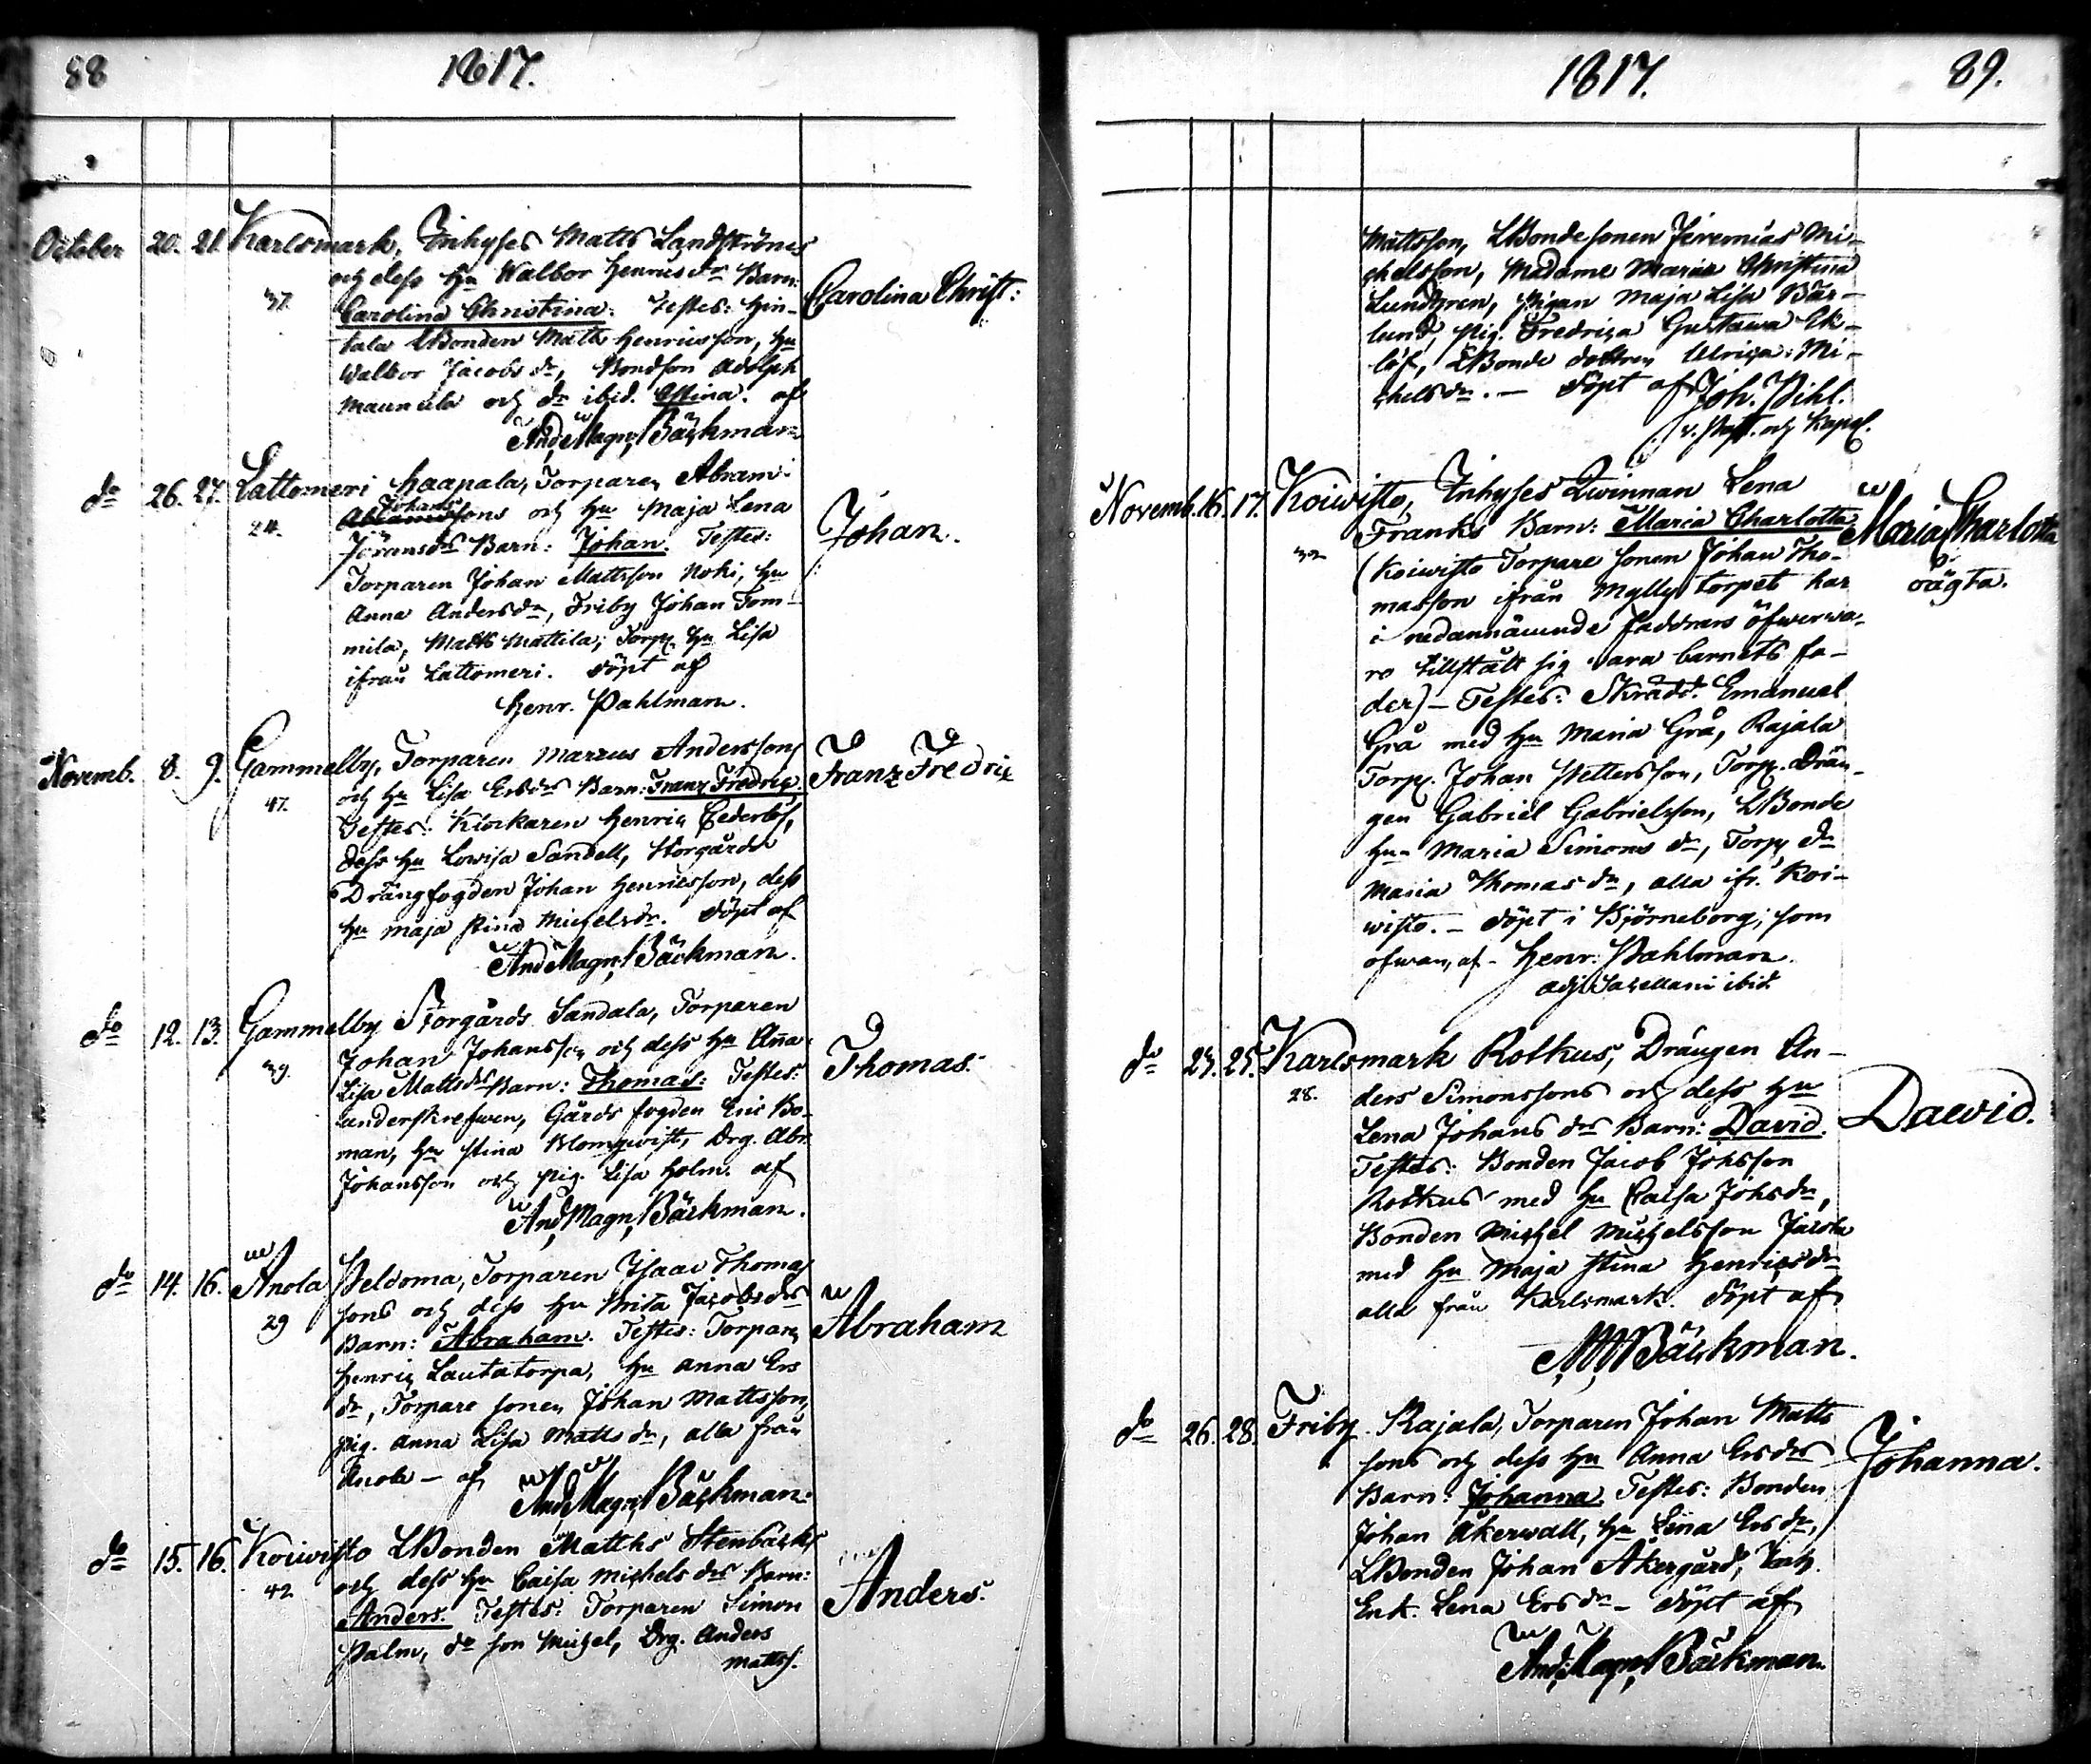 88
1817.
October 20. 21. Karlsmark, Inhyses Matts Landströms
och dess Hu Walbor Henricsdr Barn:
37. Carolina Christina. Testes: Hin-
Carolina Christ:
tala LBonden Matts Henricsson, Hu
Walbor Jacobsdr, Bondson Adolph
Maunula och dr ibid. Stina. af
And. Magn. Bäckman
do 26. 27. Lattomeri Haapala, Torparen Abram
Johans
Abramssons och Hu Maja Lena
24. Göransdrs Barn: Johan. Testes:
Johan.
Torparen Johan Mattsson Noki, Hu
Anna Andersdr, Friby Johan Tom-
mila, Matts Mattila, Torp. Hu Lisa
ifrån Lattomeri. döpt af
Henr. Pahlman.
Novemb. 8. 9. Gammelby, Torparen Marcus Anderssons
och Hu Lisa Ersdrs Barn: Franz Fredric.
Franz Fredric
47. Testes: Klockaren Henric Cederlöf,
dess Hu Lowisa Sandell, Storgårds
Drängfogden Johan Henricsson, dess
Hu Maja Stina Michelsdr. döpt af
And. Magn. Bäckman.
do 12. 13. Gammelby Storgårds Sandala, Torparen
Johan Johanssons och dess Hu Anna
39. Lisa Mattsdrs Barn: Thomas. Testes:
Thomas.
underskrefwen, Gårds fogden Eric Bo-
man, Hu Stina Blomqwist, Drg. Abr.
Johansson och Pig. Lisa Holm. af
And. Magn. Bäckman.
do 14. 16. Anola Peldoma, Torparen Isaac Thomas
sons och dess Hu Brita Jacobsdrs
29 Barn: Abraham. Testes: Torparen
Abraham
Henric Lautatorpa, Hu Anna Ers
dr, Torpare sonen Johan Mattsson,
Pig. Anna Lisa Matts dr, alla från
Anola – af And. Magn. Bäckman.
do 15. 16. Koiwisto LBonden Matths Stenbäcks
och dess Hu Caisa Michels drs Barn:
42 Anders. Testes: Torparen Simon
Anders.
Palm, ds son Michel, Drg. Anders
Mattss.
1817.
89.
Mattsson, LBondesonen Jeremias Mi-
chelsson, Madame Maria Christina
Lundgren, Pigan Maja Lisa Bär-
lund, Pig. Fredrica Gustawa Ek-
löf, LBonde dottren Ulrica Mi-
chelsdr. – döpt af Joh. Pihl.
v. Past. och Kapel.
Novemb. 16. 17. Koiwisto, Inhyses Qwinnan Lena
Franks Barn: Maria Charlotta
Maria Charlotta
(Koiwisto Torpare sonen Johan Tho-
oägta.
masson ifrån Myllytorpet har
i nedannämnde faddrars öfwerwa-
ro tillstått sig vara barnets fa-
der) – Testes: Skrädd. Emanuel
Grå med Hu Maria Grå, Rajala
Torp. Johan Pettersson, Torp. Drän-
gen Gabriel Gabrielsson, LBonde
Hu Maria Simons dr, Torp. dr
Maria Thomas dr, alla ifr. Koi-
wisto. – döpt i Björneborg, som
ofwan, af – Henr. Pahlman.
adj. Sacellani ibid.
do 23. 25. Karlsmark Rotkus, Drängen An-
ders Simonssons och dess Hu
28. Lena Johans drs Barn: David.
David.
Testes: Bonden Jacob Johsson
Rotkus med Hu Caisa Johsdr,
Bonden Michel Michelsson Jacola
med Hu Maja Stina Henricsdr
alla från Karlsmark. döpt af
AMBäckman.
do 26. 28. Friby Rajala, Torparen Johan Matts
sons och dess Hu Anna Ersdrs
Johanna.
Barn: Johanna. Testes: Bonden
Johan Åkerwall, Hu Lena Ersdr,
LBonden Johan Åkergård,
Enk. Lena Ersdr – döpt af
And. Magn. Bäckman.